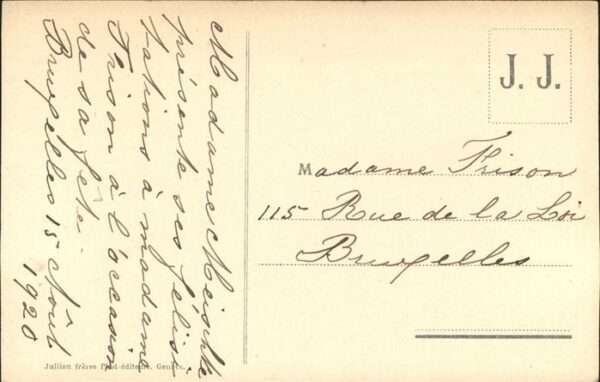 Madame Meishke
présente ses félici
tations à madame
Frison à l'occasion
de sa fête.
Bruxelles 15 Août
1920
J. J.
Madame Frison
115 Rue de la Loi
Bruxelles
Jullien frères Phot-éditeurs, Genève.